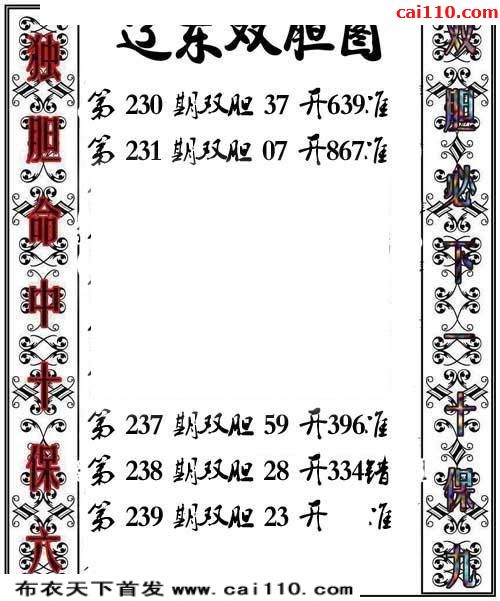 cai110.com
辽东双胆图
独胆命中十保六
第 230 期双胆 37 开639准
第 231 期双胆 07 开867准
第 237 期双胆 59 开396准
第 238 期双胆 28 开334错
第 239 期双胆 23 开 准
双胆必下一十保九
布衣天下首发 www.cai110.com